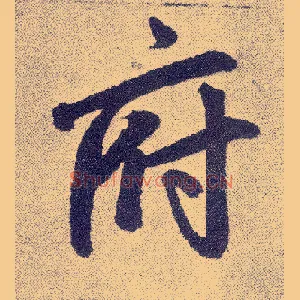 府
Shufawang.cn